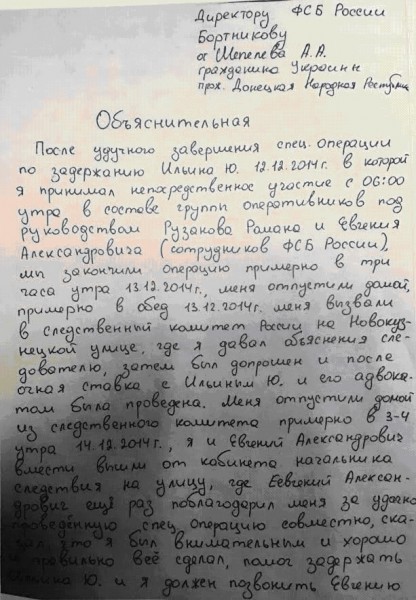 Директору ФСБ России
Бортникову
от Шепелева А.А.
гражданина Украины
прож. Донецкая Народная Республика
Объяснительная
После удучного завершения спец. операции
по задержанию Ильина Ю. 12.12.2014г. в которой
я принимал непосредственное участие с 06:00
утра в составе группы оперативников под
руководством Рузакова Романа и Евгения
Александровича (сотрудников ФСБ России),
мы закончили операцию примерно в три
часа утра 13.12.2014г., меня отпустили домой,
примерно в обед 13.12.2014г. меня вызвали
в следственный комитет России на Новокуз-
нецкой улице, где я давал объяснения сле-
дователю, затем был допрошен и после
очная ставка с Ильиным Ю. и его адвока-
том была проведена. Меня отпустили домой
из следственного комитета примерно в 3-4
утра 14.12.2014г., я и Евгений Александрович
вместе вышли от кабинета начальника
следствия на улицу, где Еевгений Алексан-
дрович ещё раз поблагодарил меня за удачно
проведённую спец. операцию совместно, ска-
зал, что я был внимательным и хорошо
и правильно всё сделал, помог задержать
Ильина Ю. и я должен позвонить Евгению